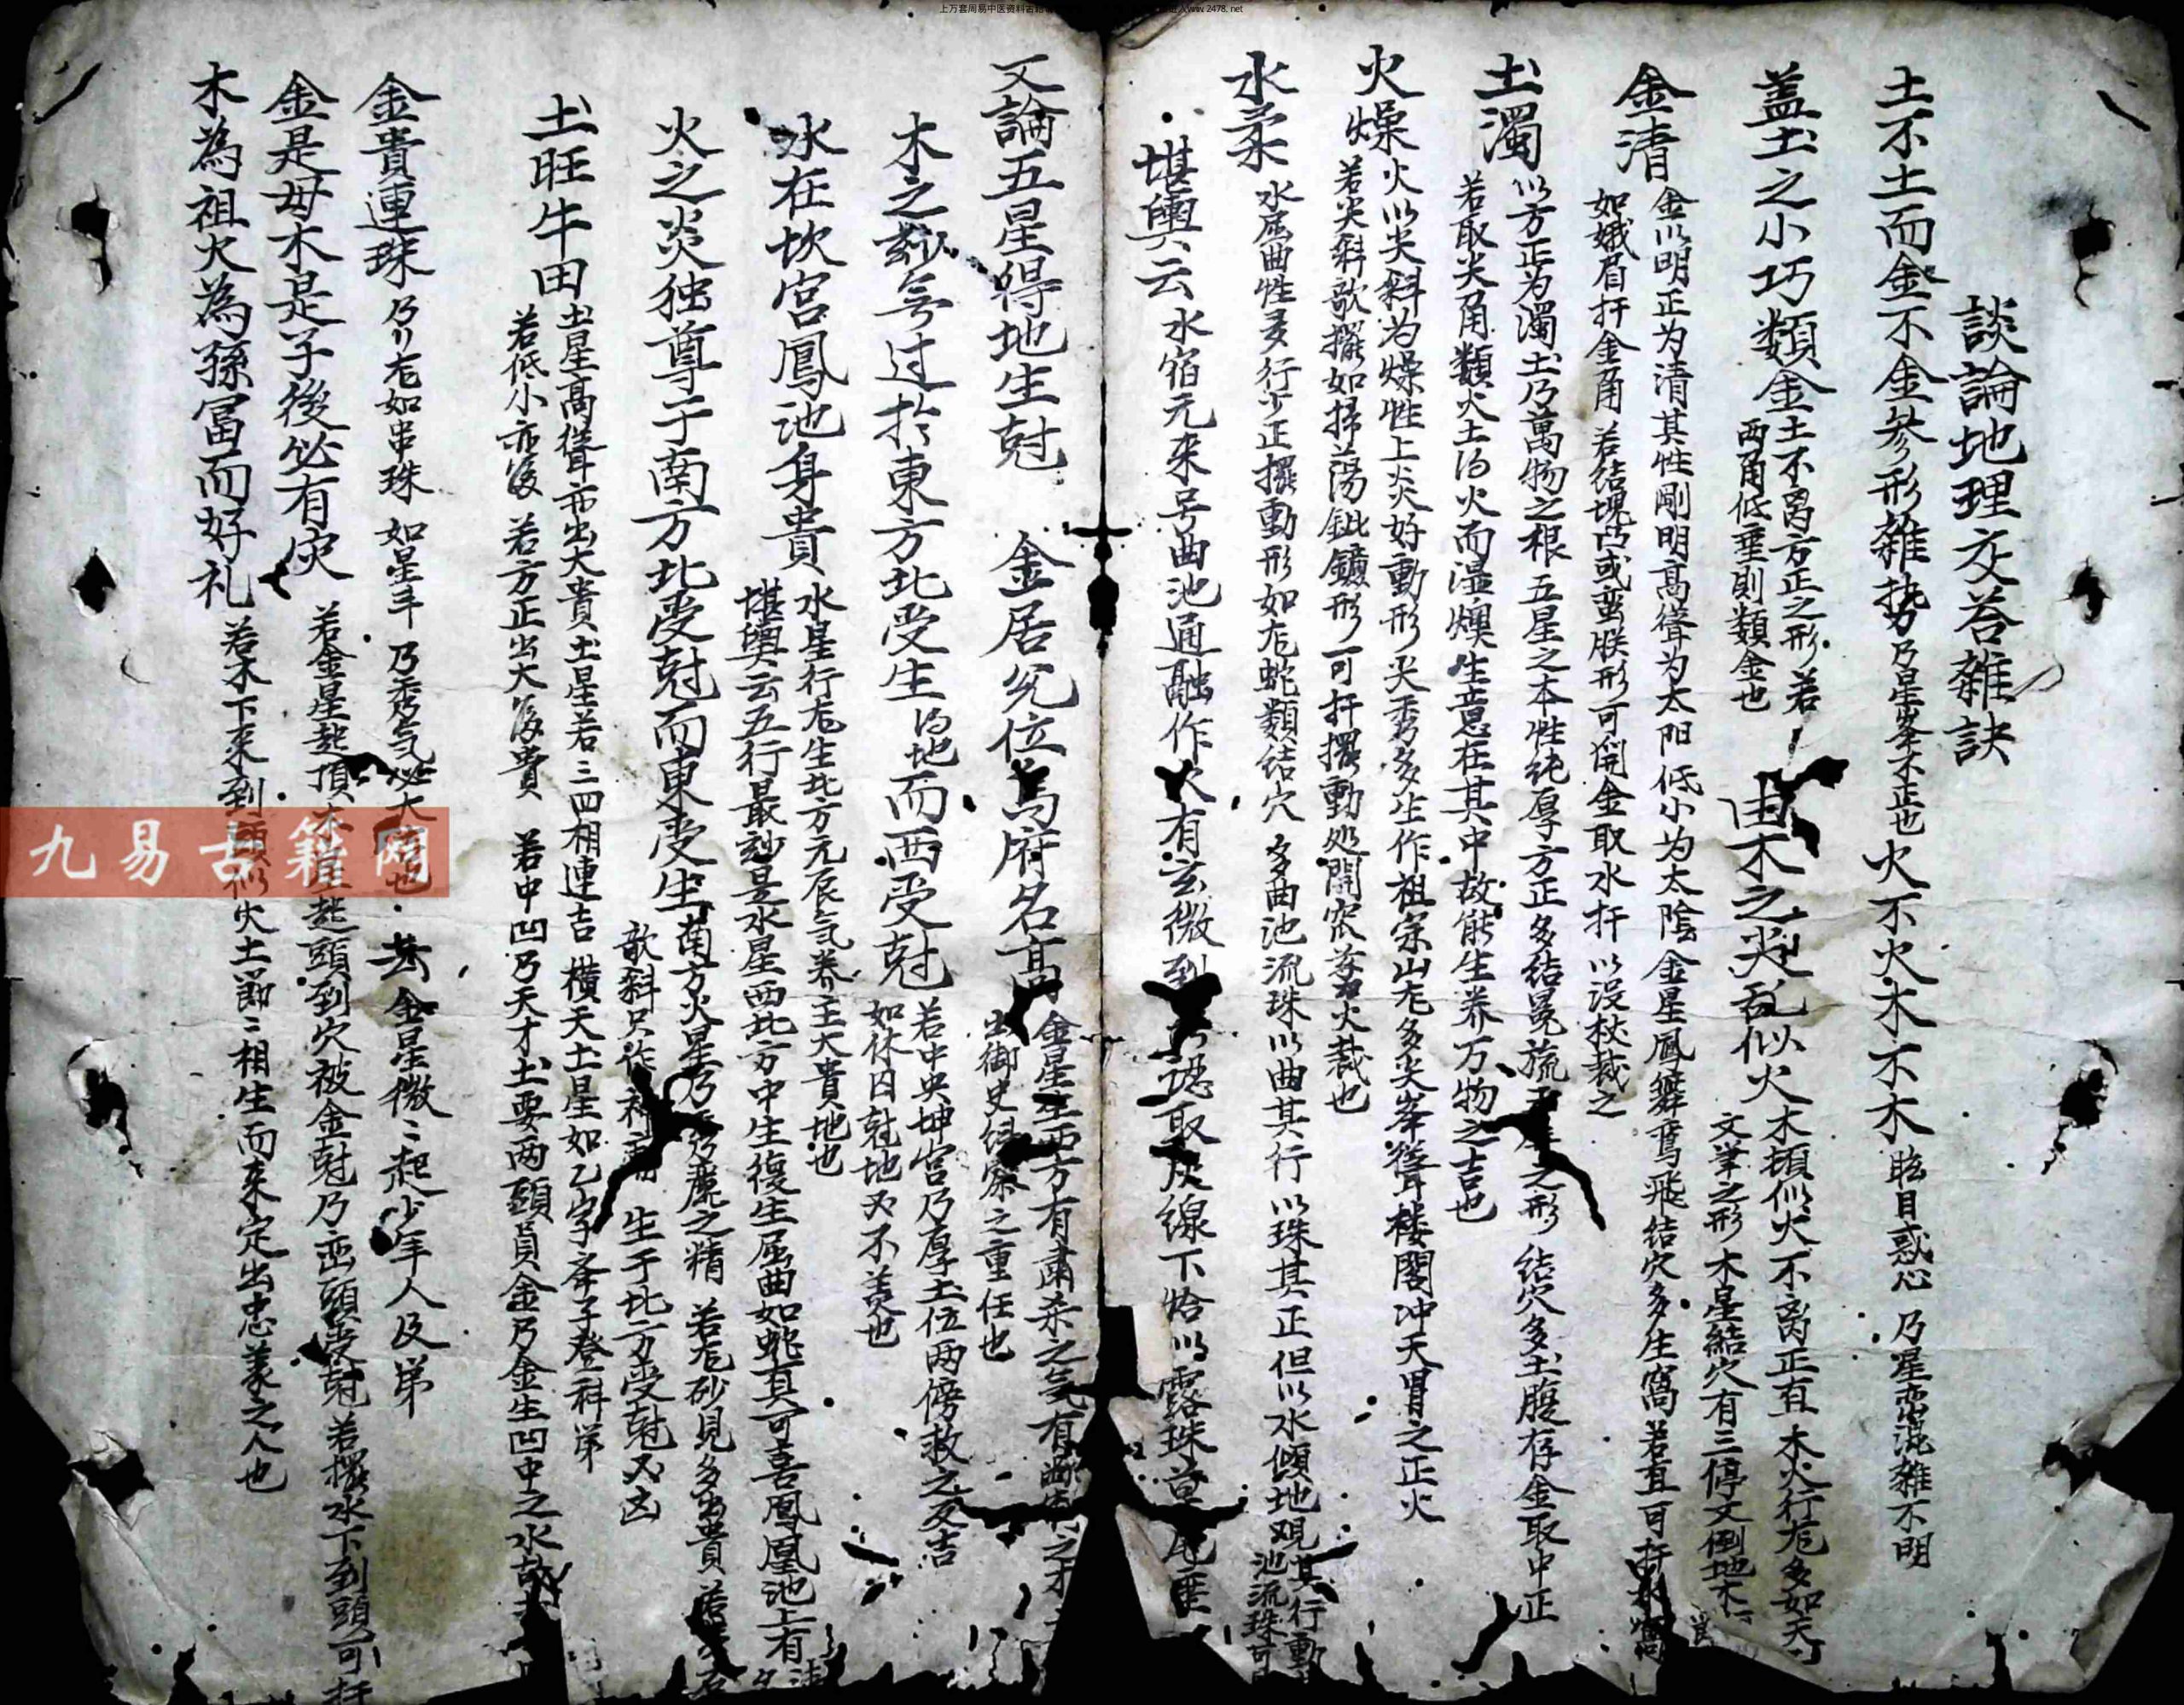 談論地理交荅雜訣
土不土而金不金参形雜势乃星峯不正也 火不火木不木 眩目惑心 乃星峦混雜不明
盖土之小巧類金
土不离方正之形 若
两角低垂則類金也
由木之尖乱似火
木頓似火不离正直 木火行龙多如天
文筆之形 木星結穴有三停 又倒地木
金清
金以明正为清其性剛明高聳为太阳低小为太陰金星鳳舞鸞飛结穴多生窩若直可扦
如娥眉扦金角 若结塊凸或蛮朕形可開金取水扦 以没校裁之
土濁
以方正为濁土乃萬物之根五星之本性純厚方正多结冕旒 之形 结穴多土腹存金取中正
若取尖角類火土得火而湿燠生意在其中故能生养万物之吉也
火燥
火以尖斜为燥性上炎好動形尖秀多生作祖宗山龙多尖峯聳楼閣冲天胃之正火
若尖斜歌擺如掃蕩鈚鑲形一可扦擺動処開窝 火裁也
水柔
水屈曲性多行少正擺動形如龙蛇類结穴 多曲池流珠以曲其行 以珠其正但以水傾地观其行動
池流珠可
堪輿云水宿元来号曲池通融作 有玄微到 取灰線下恰以露珠草尾垂
又論五星得地生尅 金居兌位烏府名高
金星生西方有肅杀之气有断 之才
出御史 之重任也
木之妙兮过扵東方北受生得地而西受尅
若中央坤宫乃厚土位两傍救之反吉
如休囚尅地又不羙也
水在坎宫鳳池身貴
水星行龙生北方元辰气养主大貴地也
堪輿云五行最妙是水星西北方中生復生屈曲如蛇真可喜鳳凰池上有
火之炎独尊于南方北受尅而東受生
南方火星乃 之精 若龙砂見多出貴
歌斜只作 生于北方受尅又凶
土旺牛田
土星高聳亦出大貴土星若三四相連吉 横天土星如乙字斉子登科第
若低小亦富 若方正出大富貴 若中凹乃天才土要两頭員金乃金生凹中之水
金貴連珠 乃行龙如串珠 如星斗 乃秀气必大 也 金星微〻起少年人及第
金是母木是子後必有灾
若金星起頂木星起頭到穴被金尅乃峦頭受尅 若擺水下到頭可扦
木為祖火為孫冨而好礼
若木下来到頭似火土節〻相生而来定出忠義之人也
九易古籍网